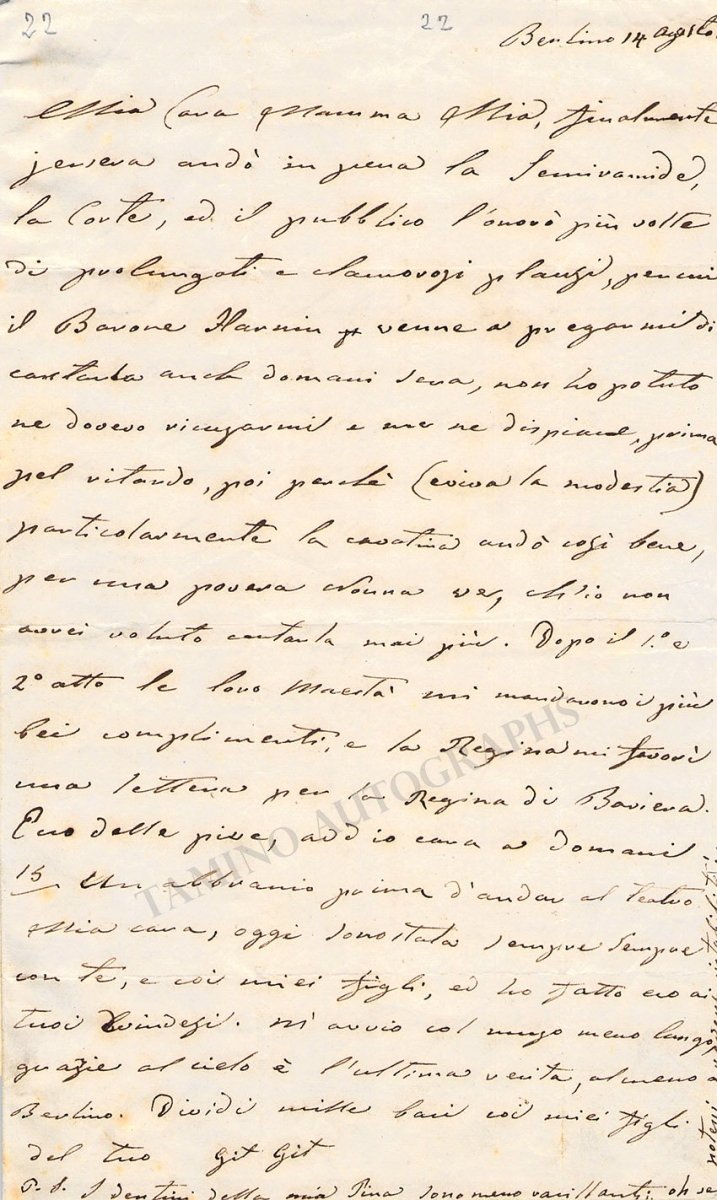 22
22
Berlino 14 agosto
Mia Cara Mamma Mia, finalmente
jersera andò in scena la Semiramide,
la Corte, ed il pubblico l'onorò più volte
di prolungati e clamorosi plausi, per cui
il Barone venne a pregarmi di
cantarla anche domani sera, non ho potuto
ne dovevo ricusarmi e me ne dispiace, prima
pel ritardo, poi perchè (eviva la modestia)
particolarmente la cavatina andò così bene,
per una povera Nonna ch'io non
avrei voluto cantarla mai più. Dopo il 1.º e
2º atto le loro Maestà mi mandavono i più
bei complimenti, e la Regina mi favorì
una lettera per la Regina di Baviera.
Ecco delle pive, addio cara a domani
15 Un abbraccio prima d'andar al Teatro
Mia cara, oggi sono stata sempre sempre
con te, e coi miei figli, ed ho fatto eco ai
tuoi brindesi. M'avvio col muso meno lungo
grazie al cielo è l'ultima recita, almeno a
Berlino. Dividi mille baci coi miei figli
del tuo Git Git
P.S. I dentini della mia Pina sono meno vacillanti oh se
TAMINO AUTOGRAPHS